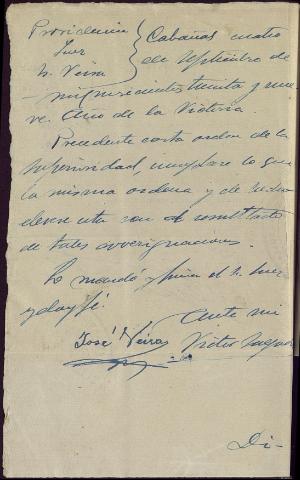 Providencia
Juez
Sr. Veira
Cabañas cuatro
de Septiembre de
mil novecientos treinta y nue-
ve. Año de la Victoria.
Precedente carta orden de la
superioridad, cumplase lo que
la misma ordena y de
elevese esta con el resultado
de tales averiguaciones.
Lo mandó y firma el Sr. Juez
y doy fé.
Ante mi
José Veira
Victor
Di-